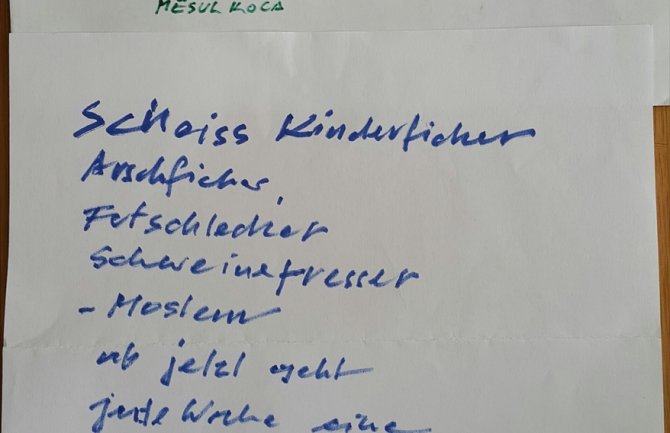 MESUL KOCA
Scheiss Kinderficker
Arschficker,
Fotschlecker
Schweinefresser
- Moslem
ab jetzt geht
jede Woche eine